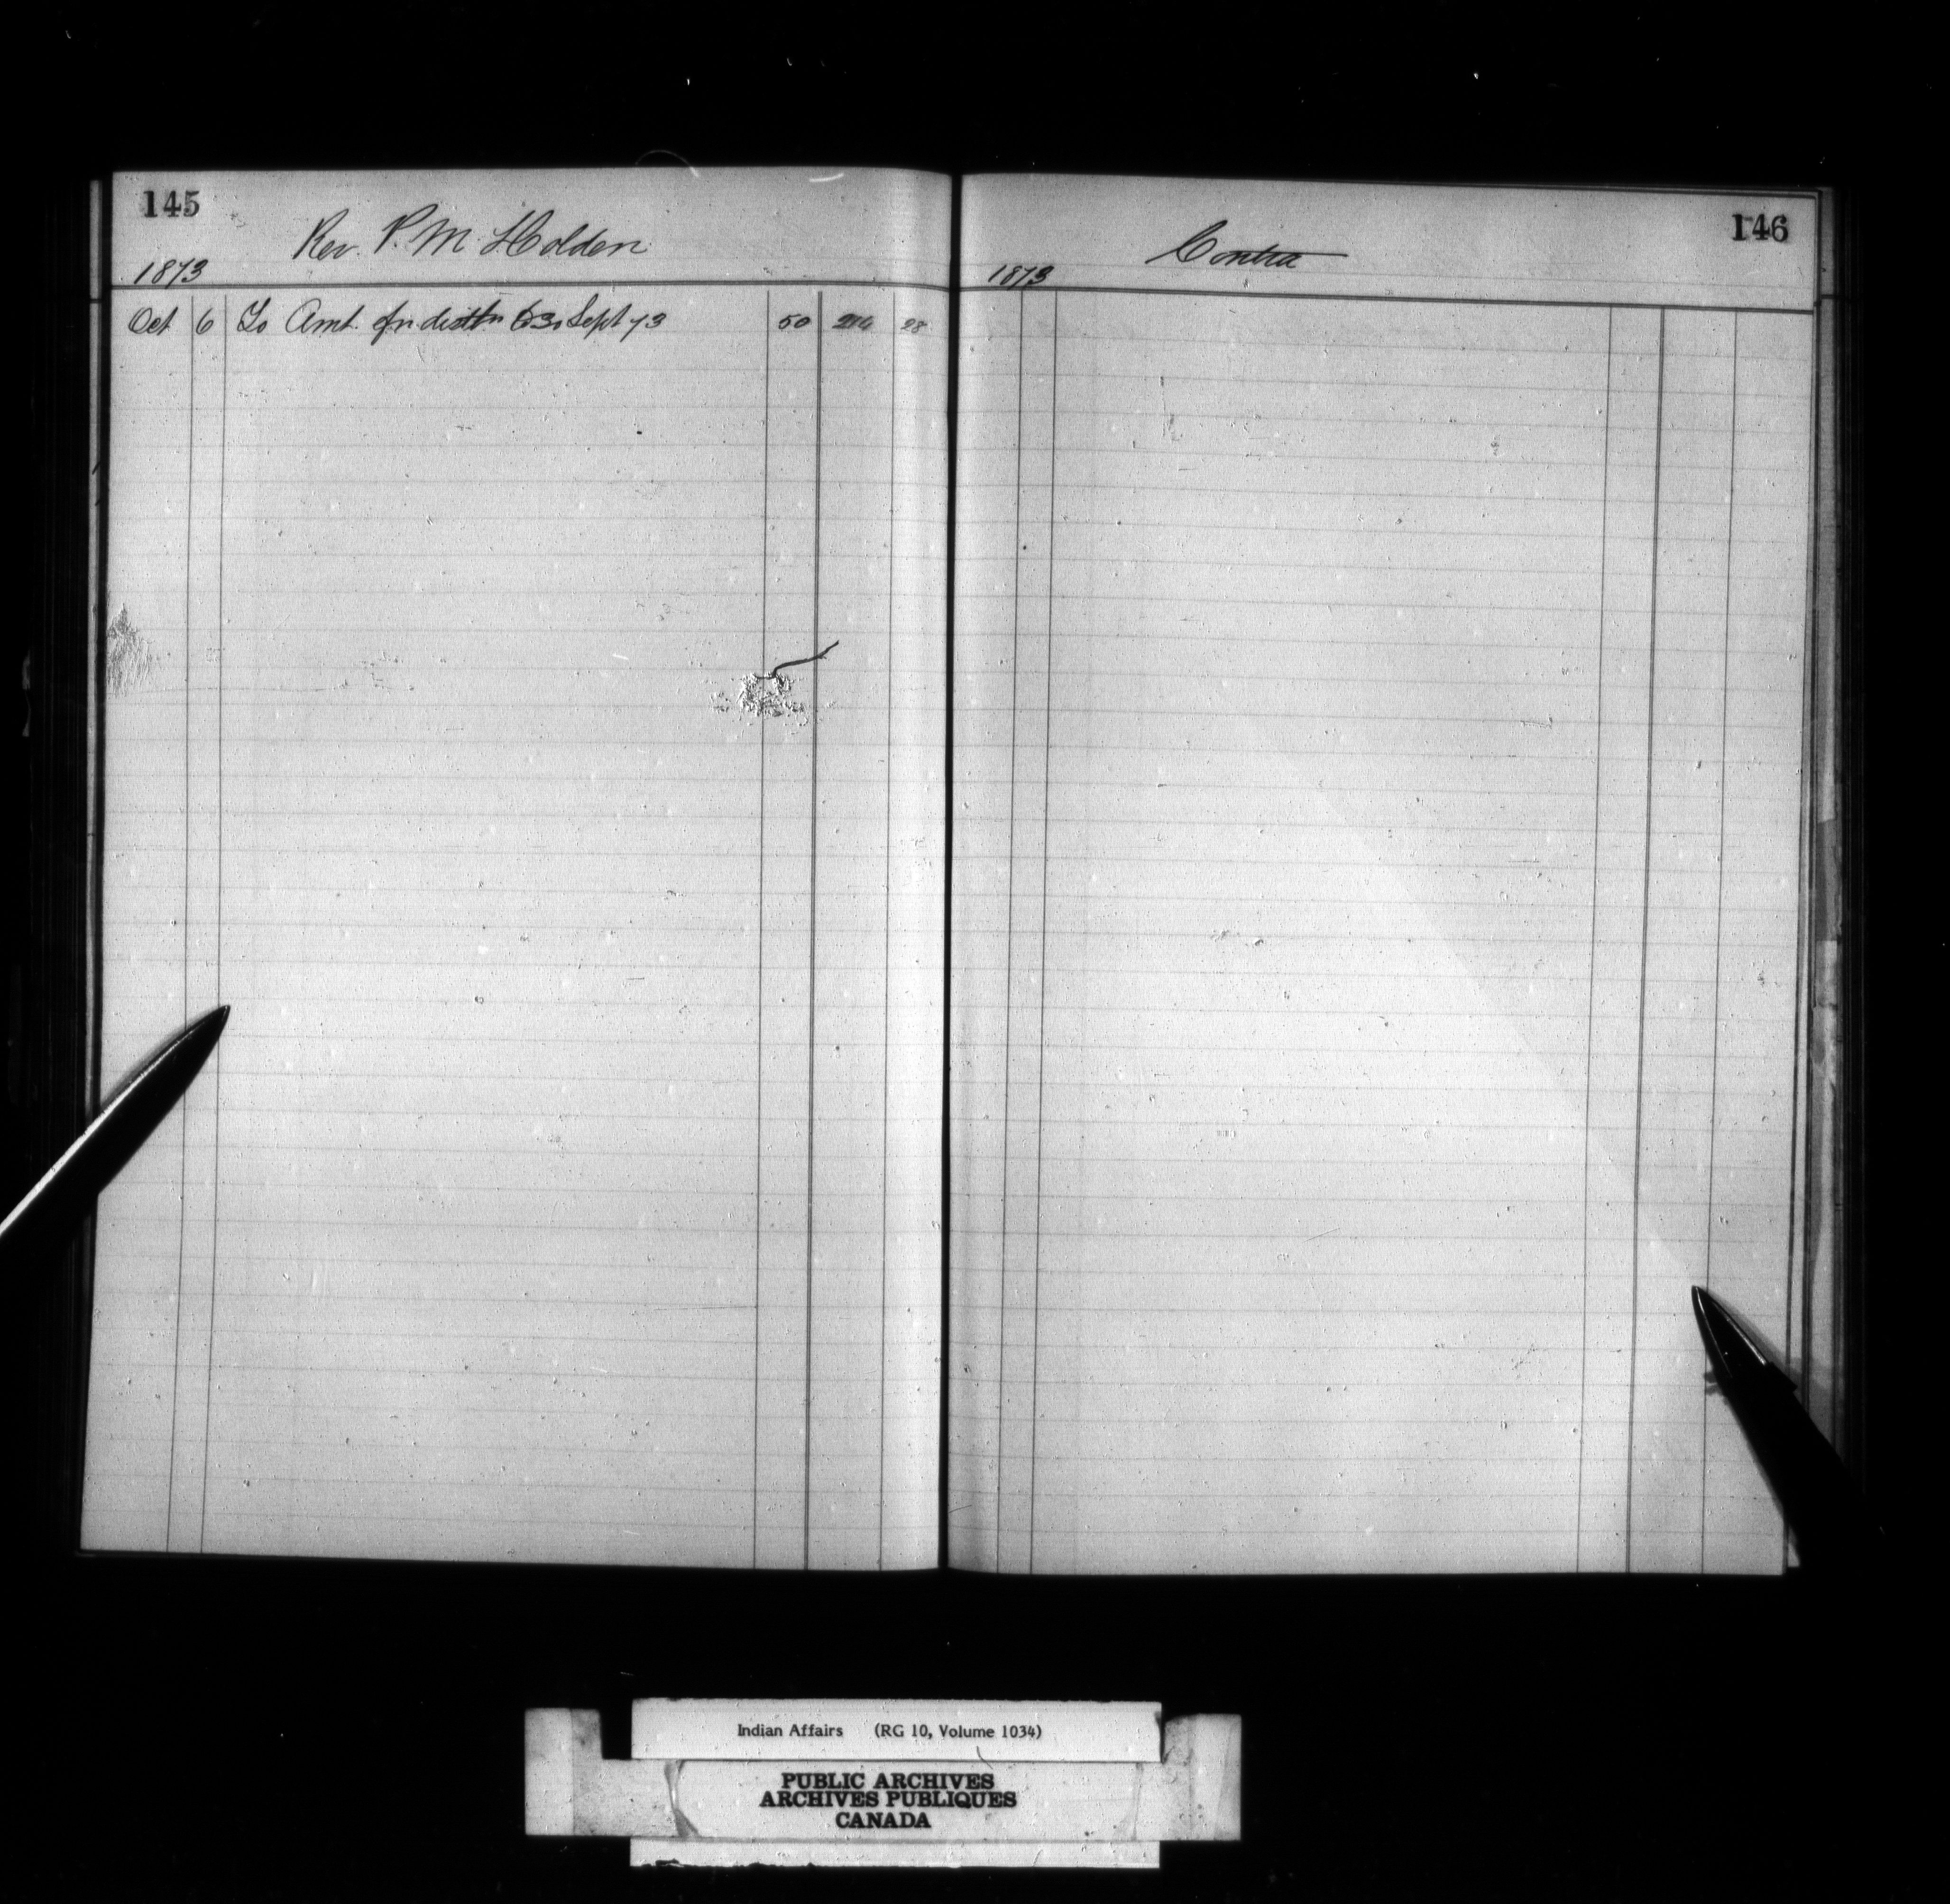 145
Rev. P. M. Holden
1873
Oct 6 To Amt. for distn Sept 73 50 214 28
146
Contra
1873
Indian Affairs (RG 10, Volume 1034)
PUBLIC ARCHIVES
ARCHIVES PUBLIQUES
CANADA